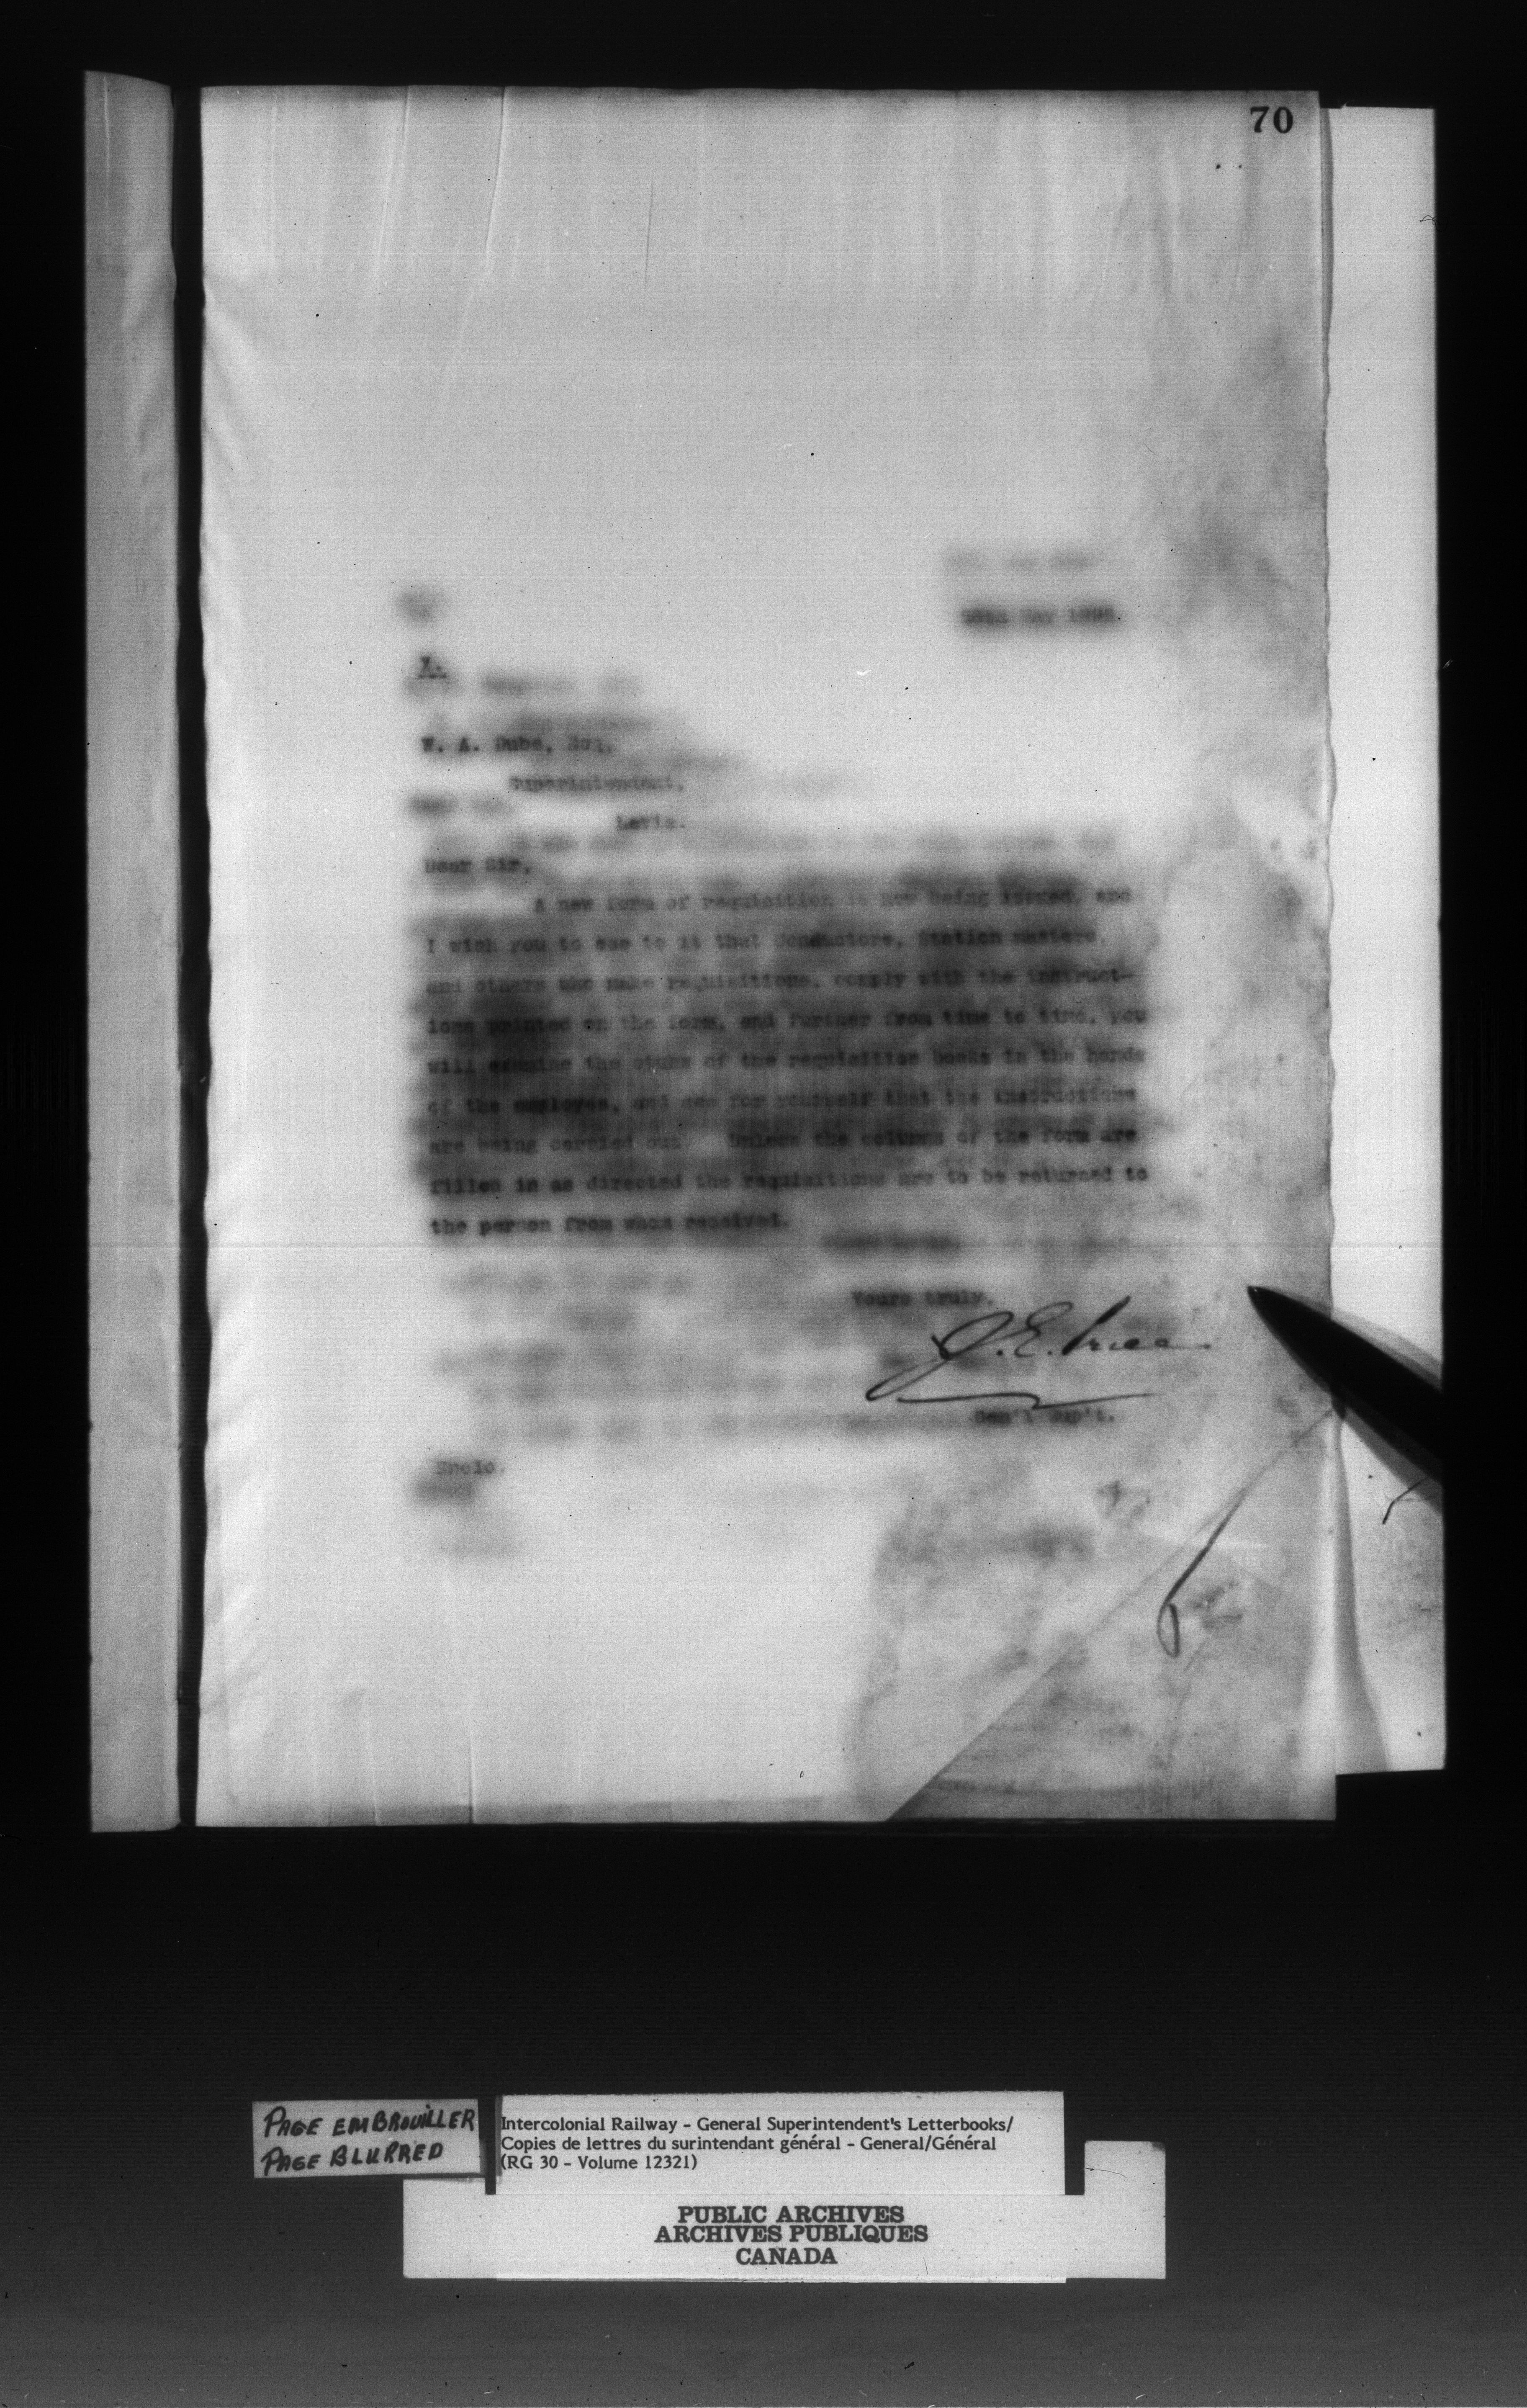 70
May
Y.
W. A. Dube, Esq,
Superintendent,
Levis.
Dear Sir,
A new form of requisition is now being issued, and
I wish you to see to it that Conductors, Station Masters,
and others who make requisitions, comply with the instruct-
ions printed on the form, and further from time to time, you
will examine the stubs of the requisition books in the hands
of the employee, and see for yourself that the instructions
are being carried out. Unless the columns of the form are
filled in as directed the requisitions are to be returned to
the person from whom received.
Yours truly,
J. E. Price
Gen'l Sup't.
Enclo.
PAGE EMBROUILLER
PAGE BLURRED
Intercolonial Railway - General Superintendent's Letterbooks/
Copies de lettres du surintendant général - General/Général
(RG 30 - Volume 12321)
PUBLIC ARCHIVES
ARCHIVES PUBLIQUES
CANADA